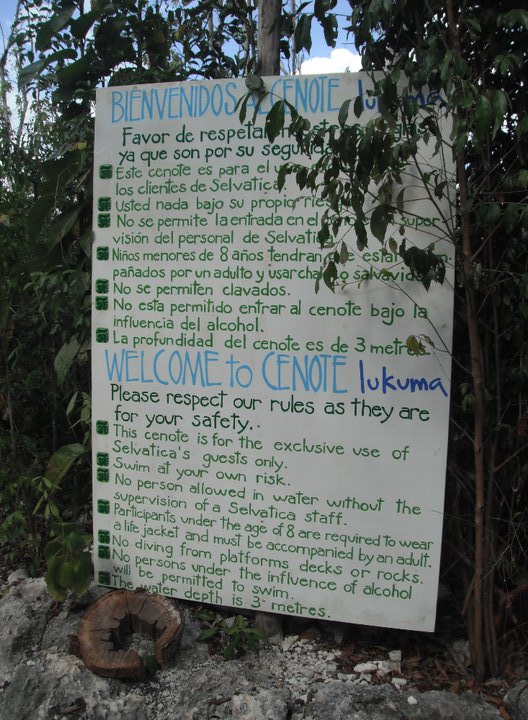 BIENVENIDOS CENOTE lukuma
Favor de respetar
ya que son por su
Este cenote es para el
los clientes de Selvatica.
Usted nada bajo su propio
No se permite la entrada en el super-
visión del personal de Selvatica
Niños menores de 8 años tendran
pañados por un adulto y usar
No se permiten clavados.
No esta permitido entrar al cenote bajo la
influencia del alcohol.
La profundidad del cenote es de 3 metros
WELCOME to CENOTE lukuma
Please respect our rules as they are
for your safety.
This cenote is for the exclusive use of
Selvatica's guests only.
Swim at your own risk.
No person allowed in water without the
supervision of a Selvatica staff.
Participants under the age of 8 are required to wear
a life jacket and must be accompanied by an adult.
No diving from platforms decks or rocks.
No persons under the influence of alcohol
will be permitted to swim.
The water depth is 3 metres.